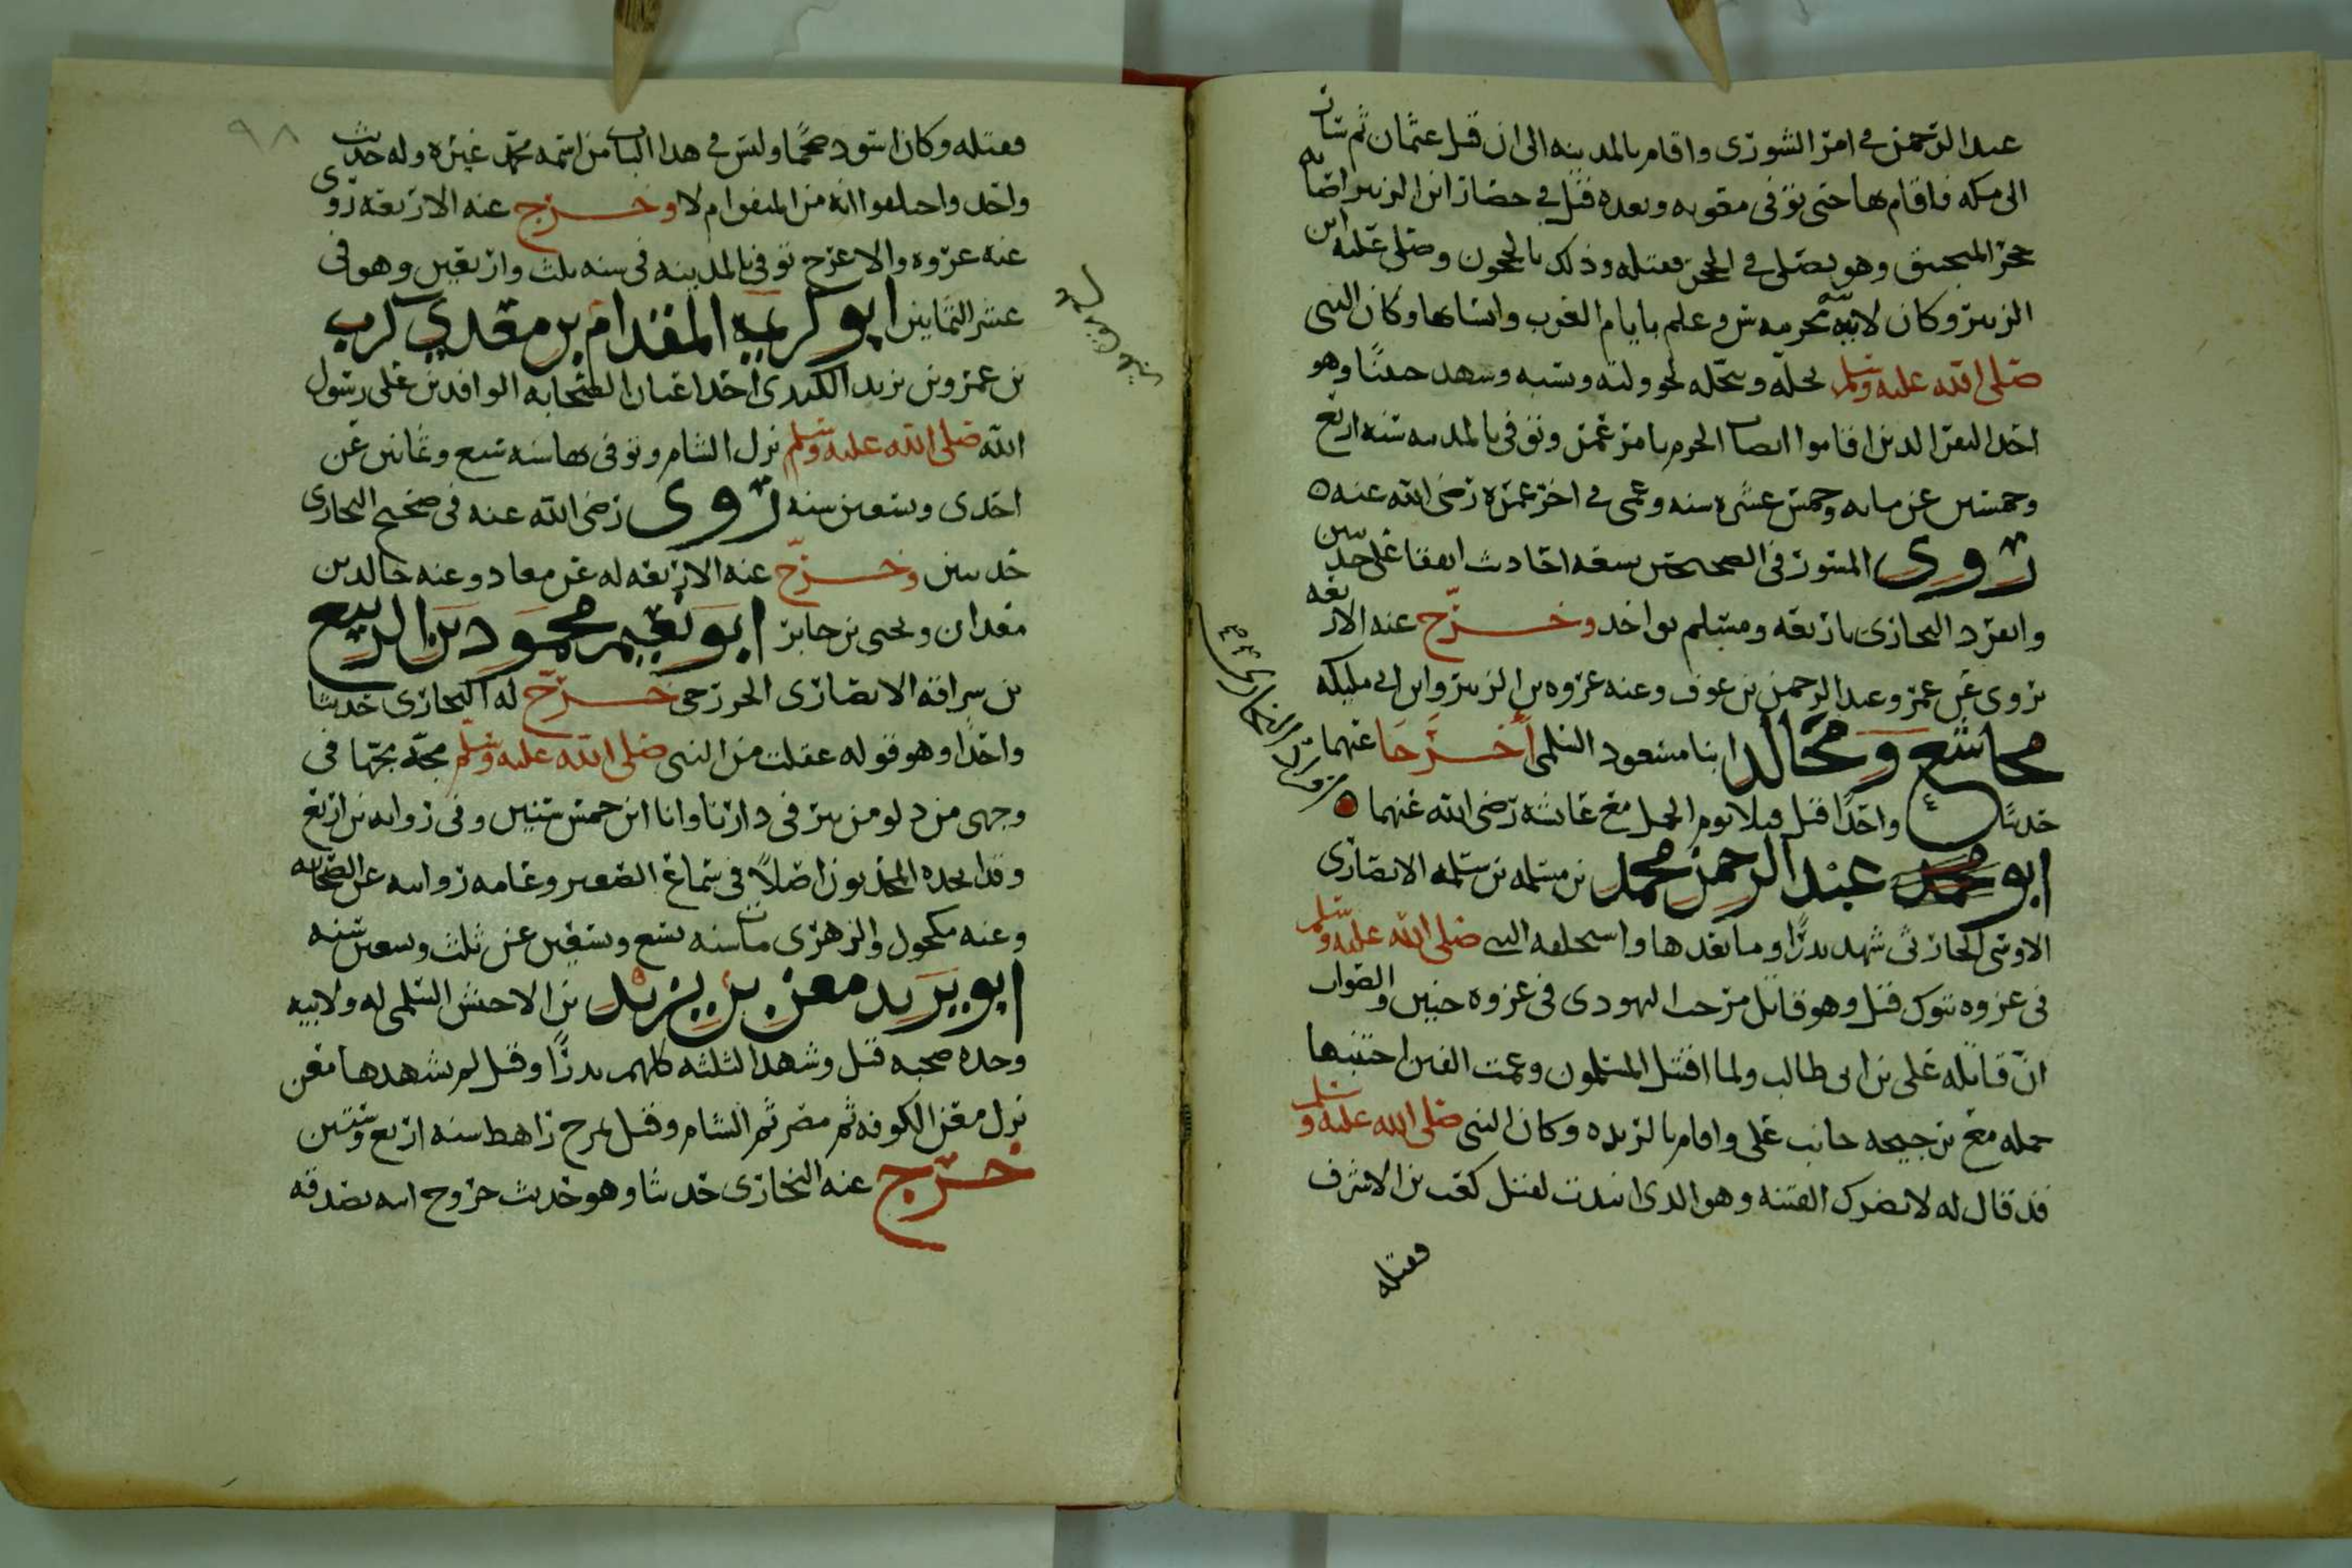 عبد الرحمن في امر الشورى واقام بالمدينه الى ان قتل عثمان ثم سار
الى مكه فاقام بها حتى توفى معويه وبعده قتل في حصار ابن الزبير اصابه
حجر المنجنيق وهو يصلى في الحجر فقتله وذلك بالحجون وصلى عليه ابن
الزبير وكان لابيه مخرمه سن وعلم بايام العرب وانسابها وكان النبى
صلى الله عليه وسلم يجله وشهد حنينا وهو
احد النفر الذين اقاموا انصاب الحرم بامر عمر وتوفى بالمدينه سنه اربع
وخمسين عن مايه وخمس عشره سنه وعمى في اخر عمره رضى الله عنه ه
روى المسور فى الصحيحين سبعه احاديث اتفقا على حديثين
وانفرد البخارى باربعه ومسلم بواحد وخرج عنه الاربعه
يروى عن عمر وعبد الرحمن بن عوف وعنه عروه بن الزبير وابن ابى مليكه
مجاشع ومجالد ابنا مسعود السلمى اخرجا عنهما
حديثا واحدا قتل قبلا يوم الجمل مع عائشه رضى الله عنهما
ابو محمد عبد الرحمن محمد بن مسلمه بن سلمه الانصارى
الاوسى الحارثى شهد بدرا وما بعدها واستخلفه النبى صلى الله عليه وسلم
فى غزوه تبوك قتل وهو قاتل مرحب اليهودى فى غزوه حنين والصواب
ان قاتله على بن ابى طالب ولما اقتتل المسلمون وعمت الفتن اجتنبها
جمله مع ترجيحه جانب على واقام بالربذه وكان النبى صلى الله عليه وسلم
قد قال له لا تضرك الفتنه وهو الذى انتدب لقتل كعب بن الاشرف
فقتله
٩٨
فقتله وكان اسود ضخما وليس في هذا الباب من اسمه محمد غيره وله حديث
واحد واختلفوا انه من المتفق ام لا وخرج عنه الاربعه روى
عنه عروه والاعرج توفى بالمدينه فى سنه ثلث واربعين وهو فى
عشر الثمانين ابو كريمه المقدام بن معدي كرب
بن عمرو بن يزيد الكندى احد اعيان الصحابه الوافدين على رسول
الله صلى الله عليه وسلم نزل الشام وتوفى بها سنه سبع وثمانين عن
احدى وتسعين سنه روى رضى الله عنه فى صحيح البخارى
حديثين وخرج عنه الاربعه له عن معاذ وعنه خالد بن
معدان ويحيى بن جابر ابو نعيم محمود بن الربيع
بن سراقه الانصارى الخزرجى خرج له البخارى حديثا
واحدا وهو قوله عقلت من النبى صلى الله عليه وسلم مجه مجها فى
وجهى من دلو من بير فى دارنا وانا ابن خمس سنين وفى روايه بن اربع
وقد اتخذه المحدثون اصلا فى سماع الصغير وعامه روايته عن الصحابه
وعنه مكحول والزهرى مات سنه تسع وتسعين عن ثلث وتسعين سنه
ابو يزيد معن بن يزيد بن الاخنس السلمى له ولابيه
وجده صحبه قيل وشهد الثلثه كلهم بدرا وقيل لم يشهدها معن
نزل معن الكوفه ثم مصر ثم الشام وقتل بمرج راهط سنه اربع وستين
خرج عنه البخارى حديثا وهو حديث خروج ابيه بصدقه